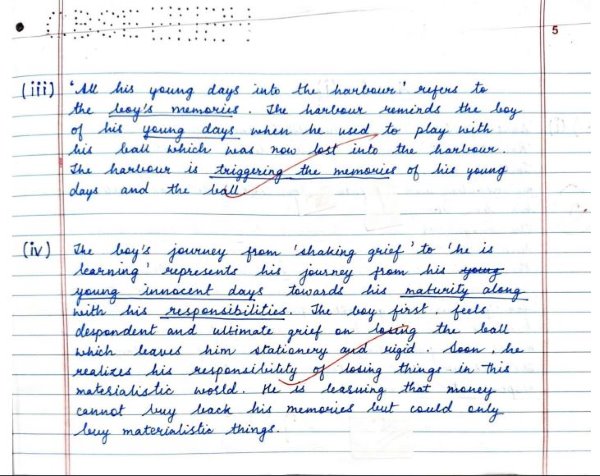 CBSE
5
(iii) 'All his young days into the harbour' refers to
the boy's memories. The harbour reminds the boy
of his young days when he used to play with
his ball which was now lost into the harbour.
The harbour is triggering the memories of his young
days and the ball.
(iv) The boy's journey from 'shaking grief' to 'he is
learning' represents his journey from his young
young innocent days towards his maturity along
with his responsibilities. The boy first, feels
despondent and ultimate grief on losing the ball
which leaves him stationery and rigid. Soon, he
realizes his responsibility of losing things in this
materialistic world. He is learning that money
cannot buy back his memories but could only
buy materialistic things.